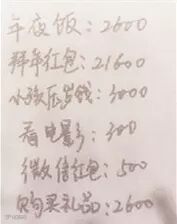 年夜饭：2600
拜年红包：21600
小孩压岁钱：3000
看电影：300
微信红包：500
购买礼品：2600